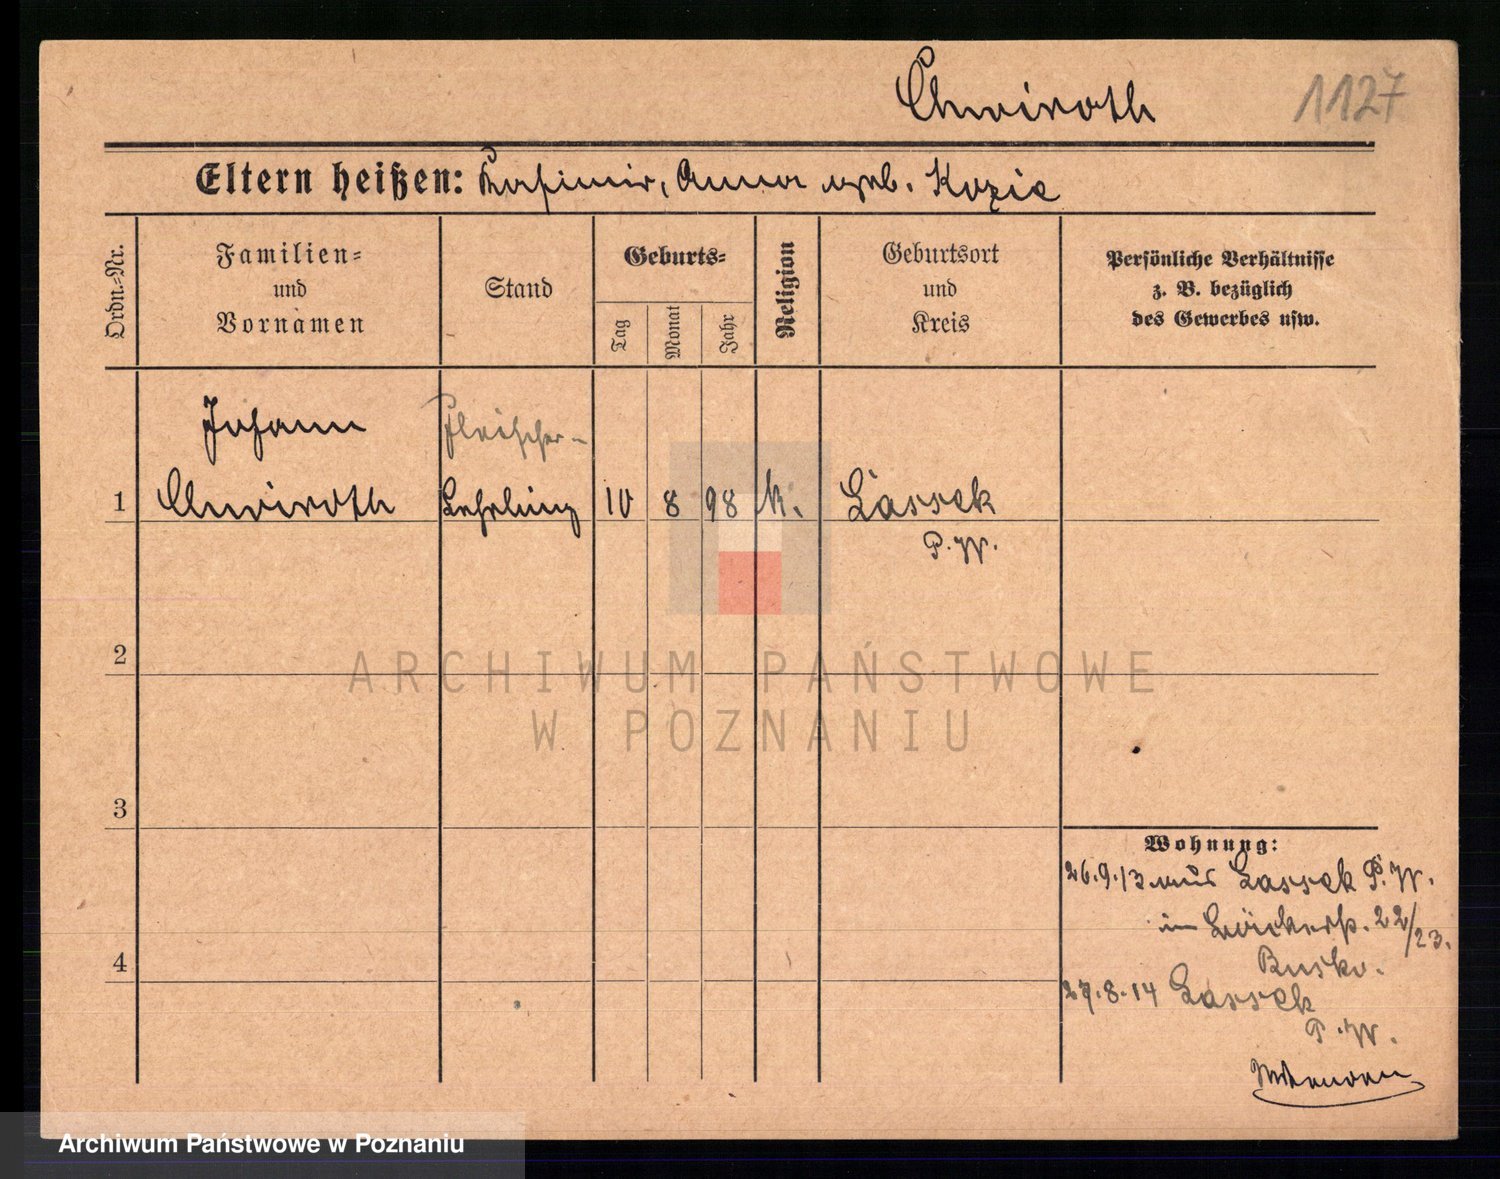 Chwiroth
1127
Eltern heißen: Kasimir, Anna geb. Kozie
Ordn.-Nr.
Familien-
und
Vornamen
Stand
Geburts-
Tag
Monat
Jahr
Religion
Geburtsort
und
Kreis
Persönliche Verhältnisse
z. B. bezüglich
des Gewerbes usw.
Johann
Fleischer-
1 Chwiroth Lehrling 10 8 98 k. Lassek
P. W.
2
ARCHIWUM PAŃSTWOWE
W POZNANIU
3
Wohnung:
26.9.13 aus Lassek P. W.
22/23.
4
Busko.
27.8.14 Lassek
P. W.
Archiwum Państwowe w Poznaniu